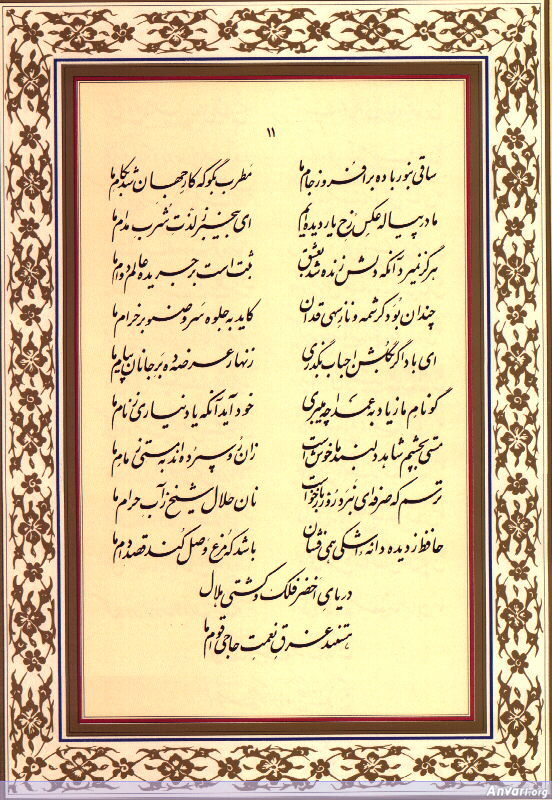 ۱۱
ساقی بنور باده برافروز جام ما مطرب بگو که کار جهان شد بکام ما
ما در پیاله عکس رخ یار دیده‌ایم ای بیخبر ز لذت شرب مدام ما
هرگز نمیرد آنکه دلش زنده شد بعشق ثبت است بر جریده عالم دوام ما
چندان بود کرشمه و ناز سهی قدان کاید به جلوه سرو صنوبر خرام ما
ای باد اگر بگلشن احباب بگذری زنهار عرضه ده بر جانان پیام ما
گو نام ما ز یاد به عمدا چه میبری خود آید آنکه یاد نیاری ز نام ما
مستی بچشم شاهد دلبند ما خوش است زان رو سپرده‌اند به مستی زمام ما
ترسم که صرفه‌ای نبرد روز بازخواست نان حلال شیخ ز آب حرام ما
حافظ ز دیده دانه اشکی همی فشان باشد که مرغ وصل کند قصد دام ما
دریای اخضر فلک و کشتی هلال
هستند غرق نعمت حاجی قوام ما
Anvari.org